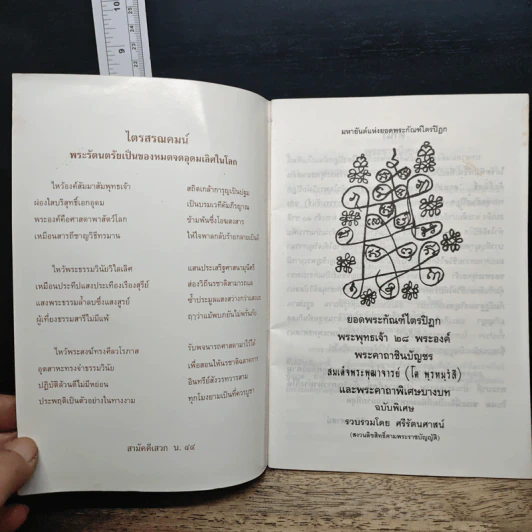 ไตรสรณคมน์
พระรัตนตรัยเป็นของหมดจดอุดมเลิศในโลก
ไหว้องค์สัมมาสัมพุทธเจ้า
สถิตเกล้าการุญเป็นปฐม
ผ่องใสบริสุทธิ์เอกอุดม
เป็นบรมเวทีคัมภีรญาณ
พระองค์คือศาสดาพาสัตว์โลก
ข้ามพ้นซึ่งโอฆสงสาร
เหมือนสารถีชาญวิธีทรมาน
ให้ไพจาลกลับร้ายกลายเป็นดี
ไหว้พระธรรมวินัยวิไลเลิศ
แสนประเสริฐศาสนามุนีศรี
เหมือนประทีปแสงประเทืองเรืองสุรีย์
ส่องวิถีนรชาติสามารถแล
แสงพระธรรมล้ำลบซึ่งแสงสูรย์
ซ้ำประมูลแสงสว่างกว่าแสงแข
ผู้เที่ยงธรรมสารีไม่มีแพ้
ไหว้พระสงฆ์ทรงศีลวโรภาส
รับพจนารถศาสดามาไว้ได้
อุตสาหะทรงจำธรรมวินัย
เพื่อสอนให้นรชาติฉลาดการ
ปฏิบัติด้วนดีไม่มีหย่อน
อินทรีย์สังวรทวารสาม
ประพฤติเป็นตัวอย่างในทางงาม
ทุกโมงยามเป็นที่ควรบูชา
สามัคคีเสวก น. ๔๙
มหายันต์แห่งยอดพระกัณฑ์ไตรปิฎก
ยอดพระกัณฑ์ไตรปิฎก
พระพุทธเจ้า ๒๘ พระองค์
พระคาถาชินบัญชร
สมเด็จพระพุฒาจารย์ (โต พฺรหฺมรํสี)
และพระคาถาพิเศษบางบท
ฉบับพิเศษ
รวบรวมโดย ศรีรัตนศาสน์
(สงวนลิขสิทธิ์ตามพระราชบัญญัติ)